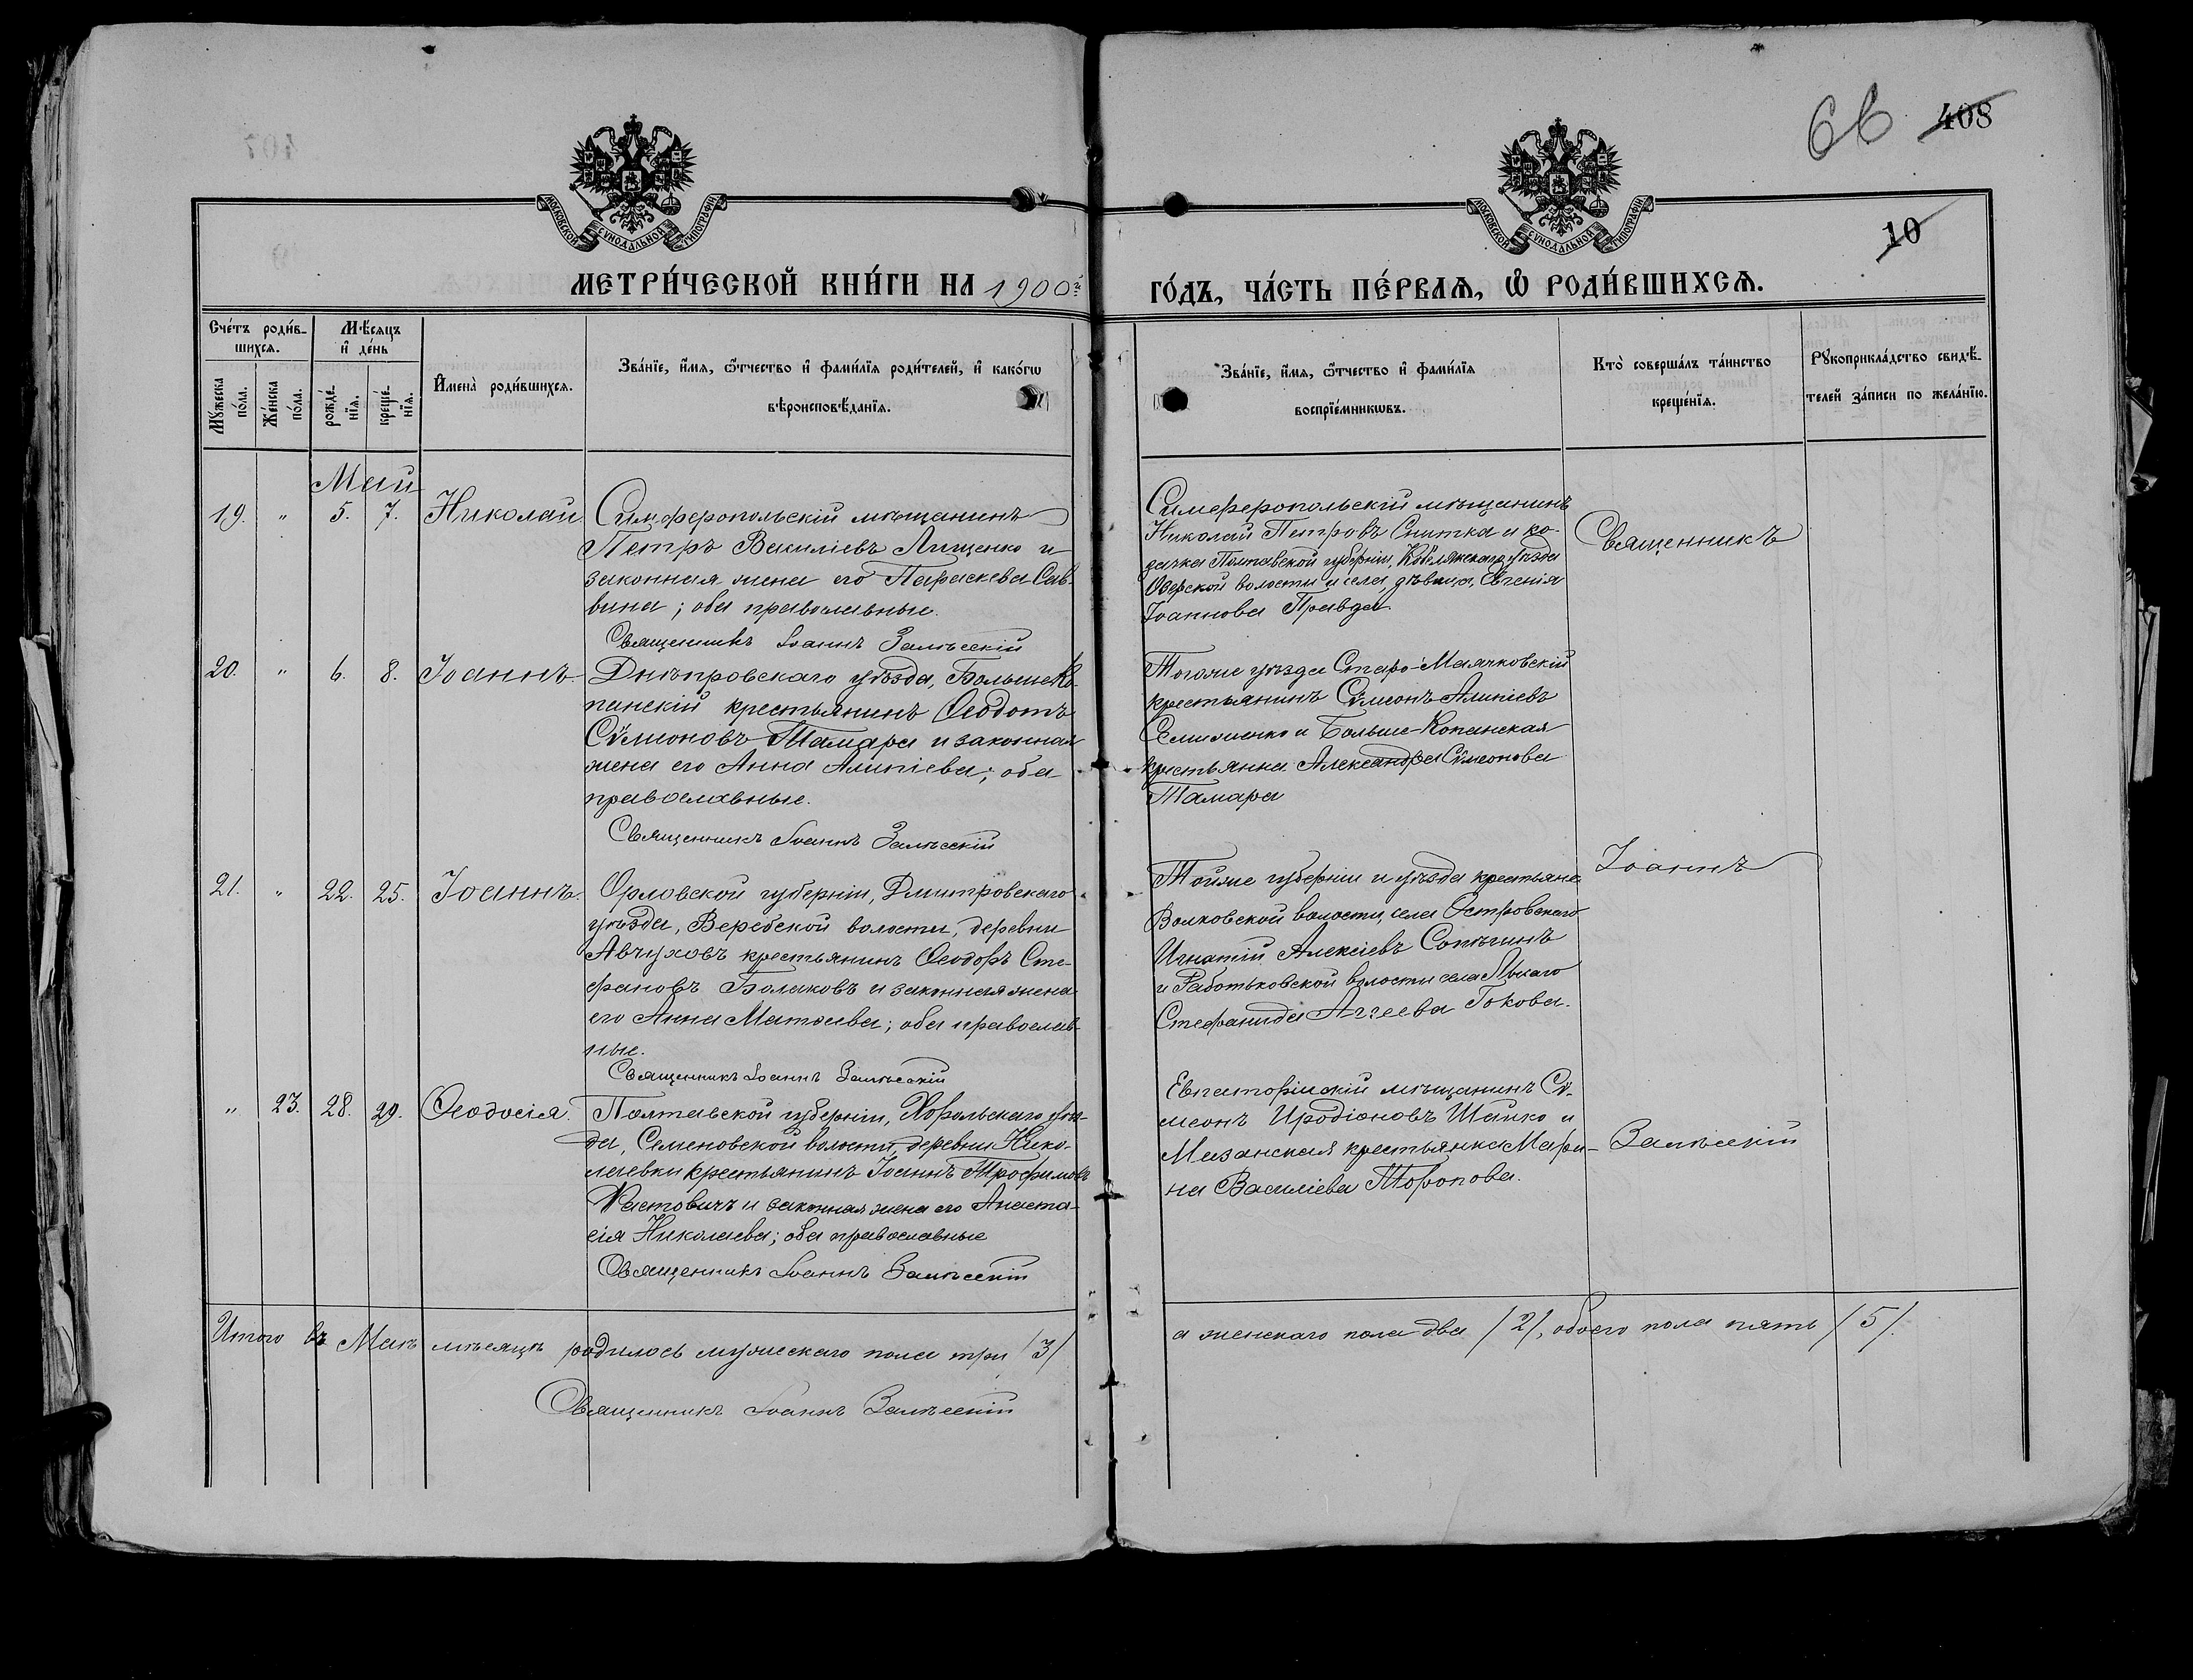 408
10
МОСКОВСКОЙ СУНОДАЛЬНОЙ ТИПОГРАФІИ
МОСКОВСКОЙ СУНОДАЛЬНОЙ ТИПОГРАФІИ
МЕТРИ́ЧЕСКОЙ КНИ́ГИ НА 1900й
ГО́ДЪ, ЧА́СТЬ ПЕ́РВАѦ, Ѡ҆ РОДИ́ВШИХСѦ.
Сче́тъ роди́в-
шихсѧ.
Мꙋ́жеска по́ла.
Же́нска по́ла.
Мѣ́сѧцъ
и҆ де́нь
рожде́-
нїѧ.
креще́-
нїѧ.
И҆мена̀ роди́вшихсѧ.
Зва́нїе, и҆́мѧ, ѻ҆́тчество и҆ фами́лїѧ роди́телей, и҆ како́гѡ
вѣроисповѣ́данїѧ.
Зва́нїе, и҆́мѧ, ѻ҆́тчество и҆ фами́лїѧ
воспрїе́мникѡвъ.
Кто̀ соверша́лъ та́инство
креще́нїѧ.
Рꙋкоприкла́дство свидѣ́-
телей за́писи по жела́нїю.
Май
19. " 5. 7. Николай
Симферопольскій мѣщанинъ
Петръ Василіевъ Лищенко и
законная жена его Параскева Сав-
вина; оба православные.
Священникъ Іоаннъ Залѣсскій
Симферопольскій мѣщанинъ
Николай Петровъ Снитка и ко-
зачка Полтавской губерніи, Кобелякскаго уѣзда
волости и села, дѣвица, Евгенія
Іоаннова Правда
Священникъ
20. " 6. 8. Іоаннъ.
Днѣпровскаго уѣзда, Больше-Ко-
панскій крестьянинъ Ѳеодотъ
Сѵмеоновъ Тамара и законная
жена его Анна Алипіева; оба
православные.
Священникъ Іоаннъ Залѣсскій
Того же уѣзда Старо-Маячковскій
крестьянинъ Сѵмеонъ Алипіевъ
и Больше-Копанская
крестьянка Александра Сѵмеонова
Тамара
21. " 22. 25. Іоаннъ.
Орловской губерніи, Дмитровскаго
уѣзда, Веребской волости, деревни
Авчуховъ крестьянинъ Ѳеодоръ Сте-
фановъ Болаковъ и законная жена
его Анна Матѳеева; оба православ-
ные.
Священникъ Іоаннъ Залѣсскій
Той же губерніи и уѣзда крестьяне
Волковской волости, села Островскаго
Игнатій Алексіевъ
и Работьковской волости села
Стефанида Аггеева Гокова.
Іоаннъ
" 23. 28. 29. Ѳеодосія.
Полтавской губерніи, Хорольскаго уѣз-
да, Семеновской волости, деревни Нико-
лаевки крестьянинъ Іоаннъ Трофимовъ
Хвастовичъ и законная жена его Анаста-
сія Николаева; оба православные
Священникъ Іоаннъ Залѣсскій
Евпаторійскій мѣщанинъ Сѵ-
меонъ Иродіоновъ Шайко и
Мазанская крестьянка Мари-
на Василіева Торопова.
Залѣсскій
Итого въ Маѣ мѣсяцѣ родилось мужескаго пола три /3/
а женскаго пола два /2/, обоего пола пять /5/.
Священникъ Іоаннъ Залѣсскій